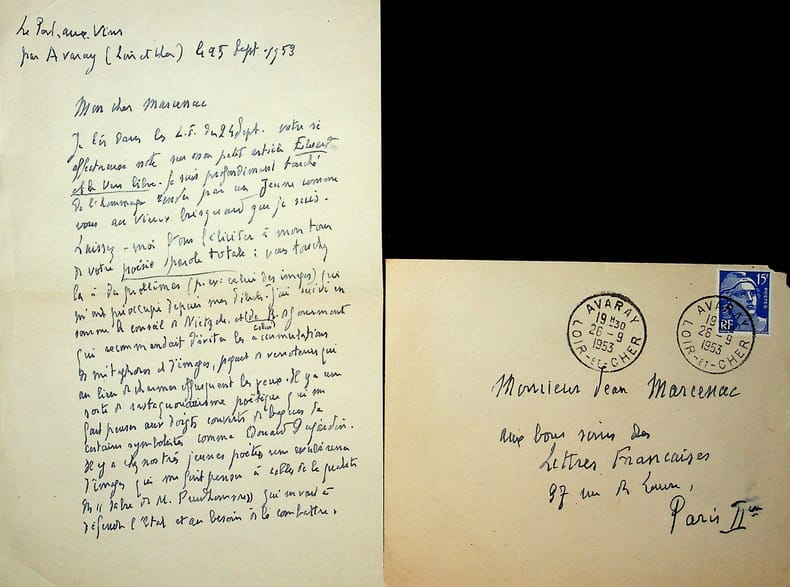 Le Port-aux-Vins
par Avaray (Loir et Cher) le 25 Sept. 1953
Mon cher Marcenac
Je lis dans les L.F. du 24 Sept. votre si
affectueuse note sur mon petit article
et le Vers libre. Je suis profondément touché
de l'hommage rendu par un Jeune comme
vous au vieux briscard que je suis.
Laissez-moi vous féliciter à mon tour
de votre poésie parole totale : vous touchez
là à des problèmes (p. ex. celui des images) qui
m'ont préoccupé depuis mes débuts. J'ai suivi en
somme le conseil de Nietzsche, et celui de R. de Gourmont
qui recommandait d'éviter les accumulations
de métaphores et d'images,
au lieu de charmer les yeux. Il y a une
sorte de rastaquouérisme poétique qui me
fait penser aux doigts couverts de bagues de
certains symbolistes comme Edouard Dujardin.
Il y a chez nos très jeunes poètes une
d'images qui me fait penser à celles de la
du "sabre de M. Prudhomme" qui servait à
défendre l'Etat et au besoin à le combattre.
AVARAY
19 H30
26 - 9
1953
LOIR-ET-CHER
AVARAY
19
26 - 9
1953
LOIR-ET-CHER
15F
POSTES
RF
Monsieur Jean Marcenac
aux bons soins des
Lettres Françaises
37 rue du Louvre,
Paris IIème